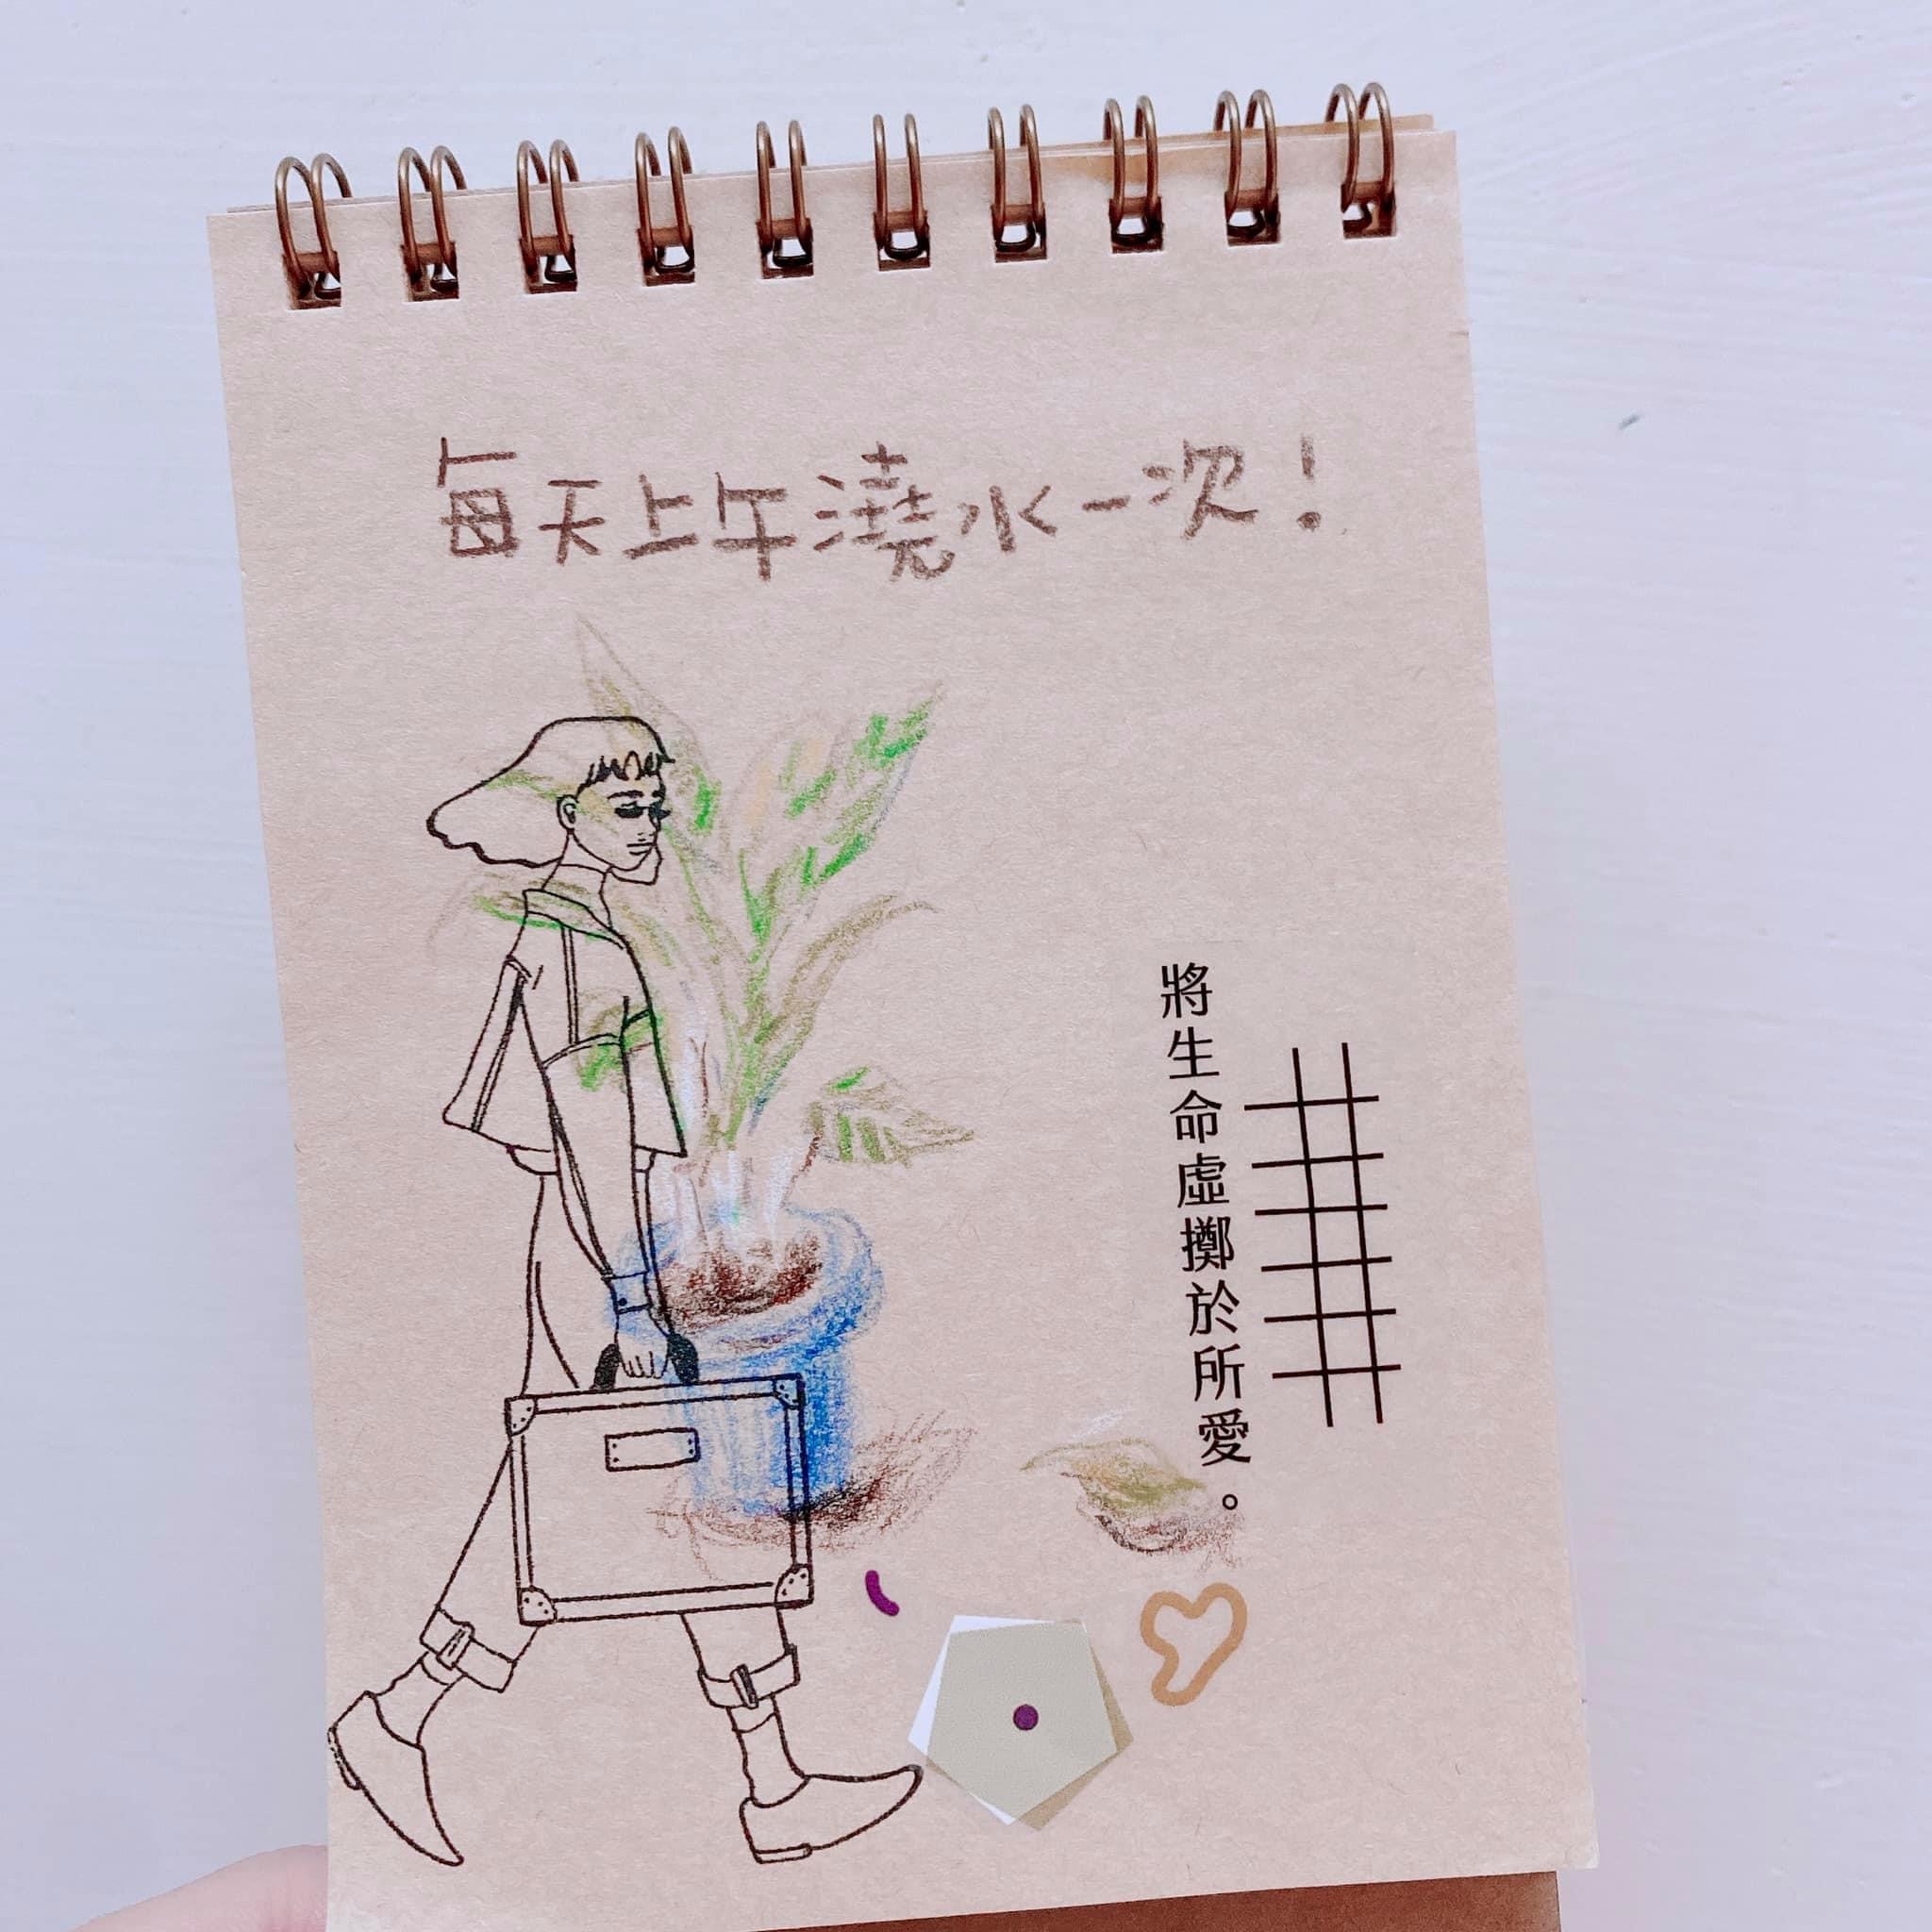 每天上午澆水一次！
將生命虛擲於所愛。